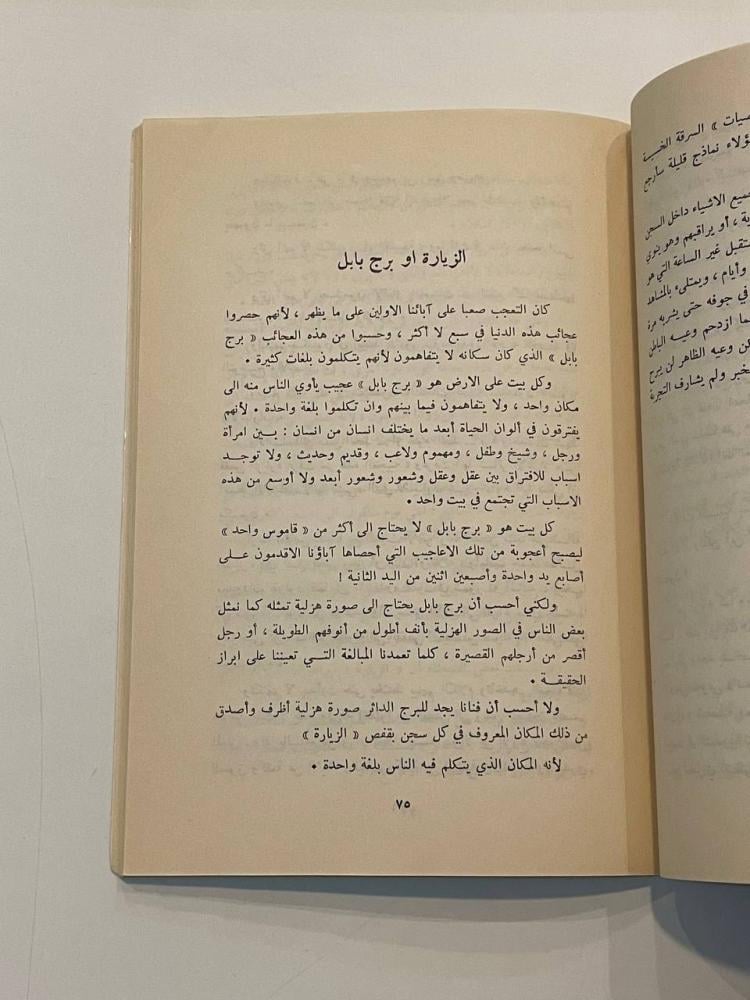 الزيارة او برج بابل
كان التعجب صعبا على آبائنا الاولين على ما يظهر ، لأنهم حصروا
عجائب هذه الدنيا في سبع لا أكثر ، وحسبوا من هذه العجائب « برج
بابل » الذي كان سكانه لا يتفاهمون لأنهم يتكلمون بلغات كثيرة .
وكل بيت على الارض هو « برج بابل » عجيب يأوي الناس منه الى
مكان واحد ، ولا يتفاهمون فيما بينهم وان تكلموا بلغة واحدة . لأنهم
يفترقون في ألوان الحياة أبعد ما يختلف انسان من انسان : بين امرأة
ورجل ، وشيخ وطفل ، ومهموم ولاعب ، وقديم وحديث ، ولا توجد
اسباب للافتراق بين عقل وعقل وشعور وشعور أبعد ولا أوسع من هذه
الاسباب التي تجتمع في بيت واحد .
كل بيت هو « برج بابل » لا يحتاج الى أكثر من « قاموس واحد »
ليصبح أعجوبة من تلك الاعاجيب التي أحصاها آباؤنا الاقدمون على
أصابع يد واحدة وأصبعين اثنين من اليد الثانية !
ولكني أحسب أن برج بابل يحتاج الى صورة هزلية تمثله كما نمثل
بعض الناس في الصور الهزلية بأنف أطول من أنوفهم الطويلة ، أو رجل
أقصر من أرجلهم القصيرة ، كلما تعمدنا المبالغة التي تعيننا على ابراز
الحقيقة .
ولا أحسب أن فنانا يجد للبرج الدائر صورة هزلية أظرف وأصدق
من ذلك المكان المعروف في كل سجن بقفص « الزيارة »
لأنه المكان الذي يتكلم فيه الناس بلغة واحدة .
٧٥
صيات » السرقة الخسيسة
ؤلاء نماذج قليلة سأرجع
جميع الاشياء داخل السجن
ية ، أو يراقبهم وهو ينوي
تقبل غير الساعة التي هو
وأيام ، ويمتلىء بالمشاهد
في جوفه حتى يشربه مرة
ما ازدحم وعيه الباطن
كن وعيه الظاهر لن يبرح
لخبر ولم يشارف التجربة